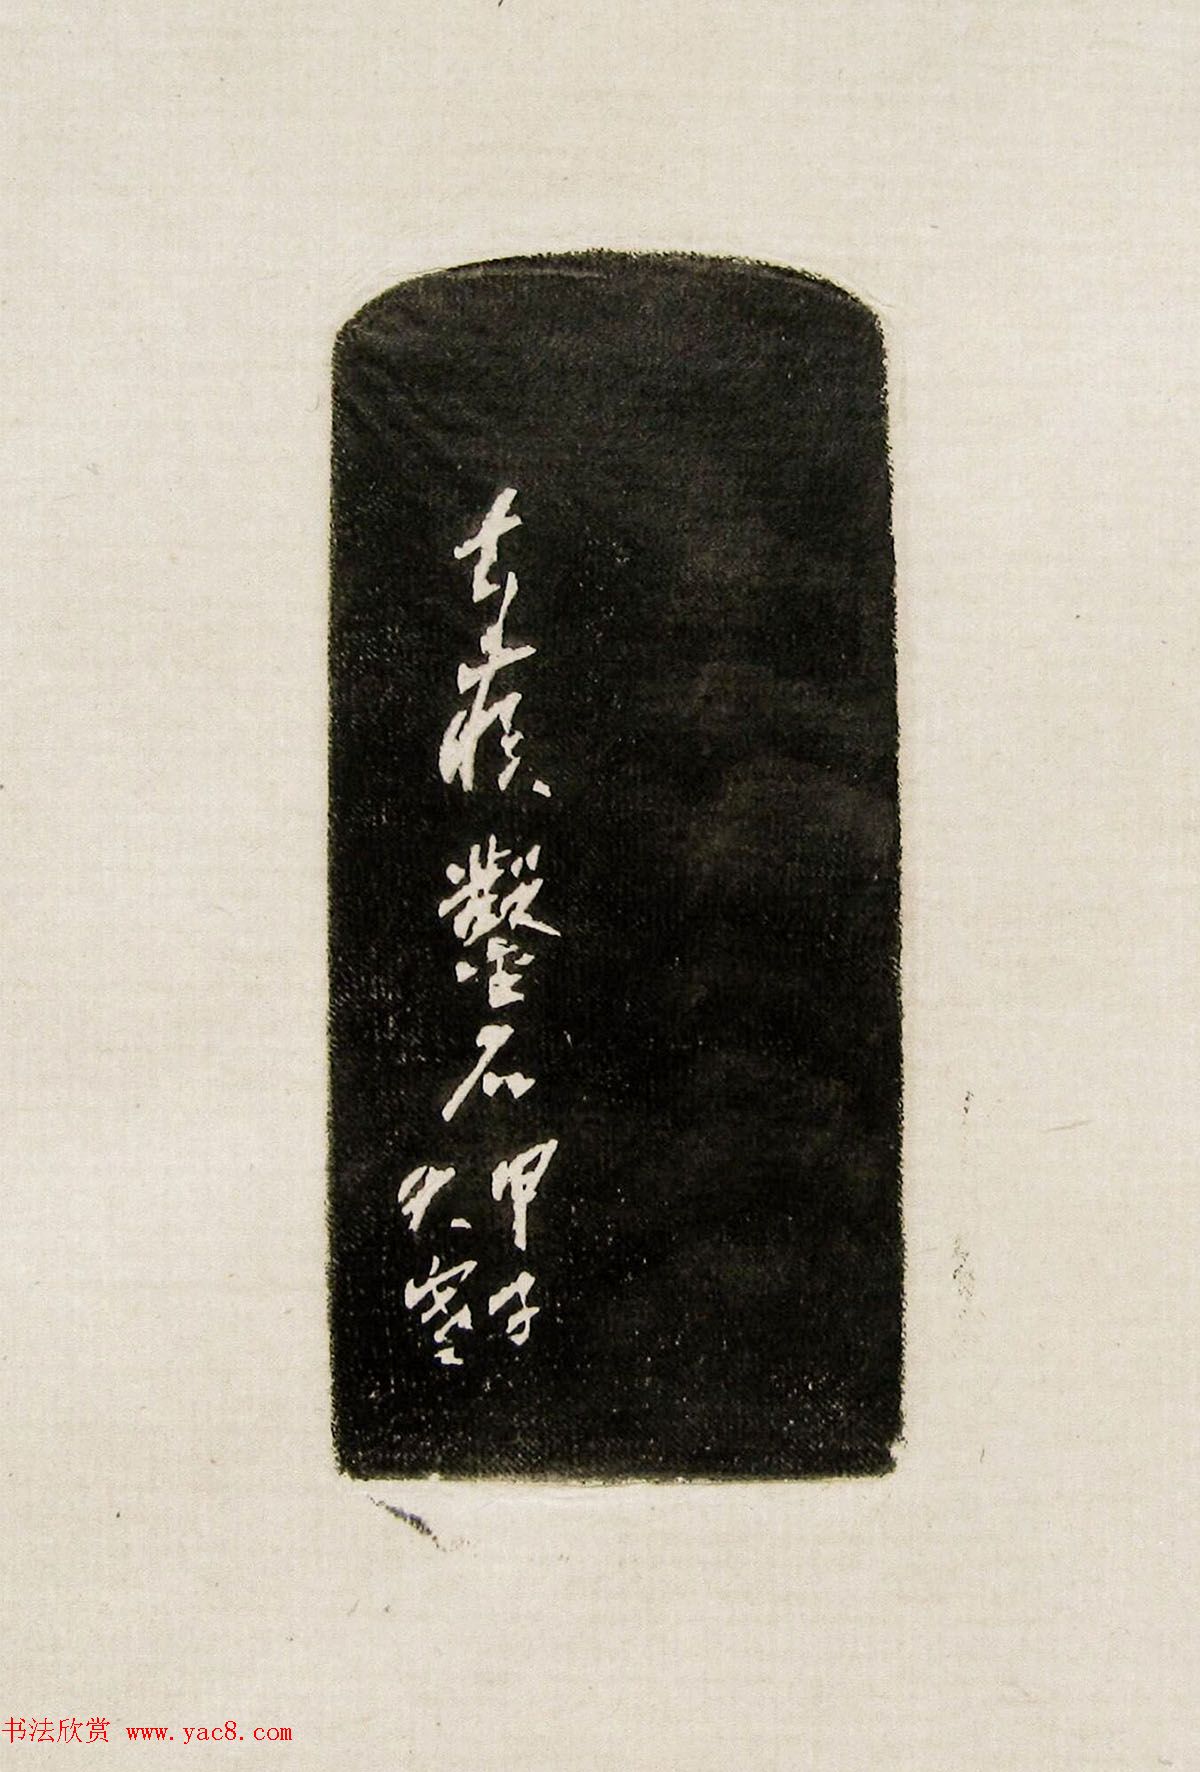 去疾鑿石
甲子
大寒
书法欣赏 www.yac8.com